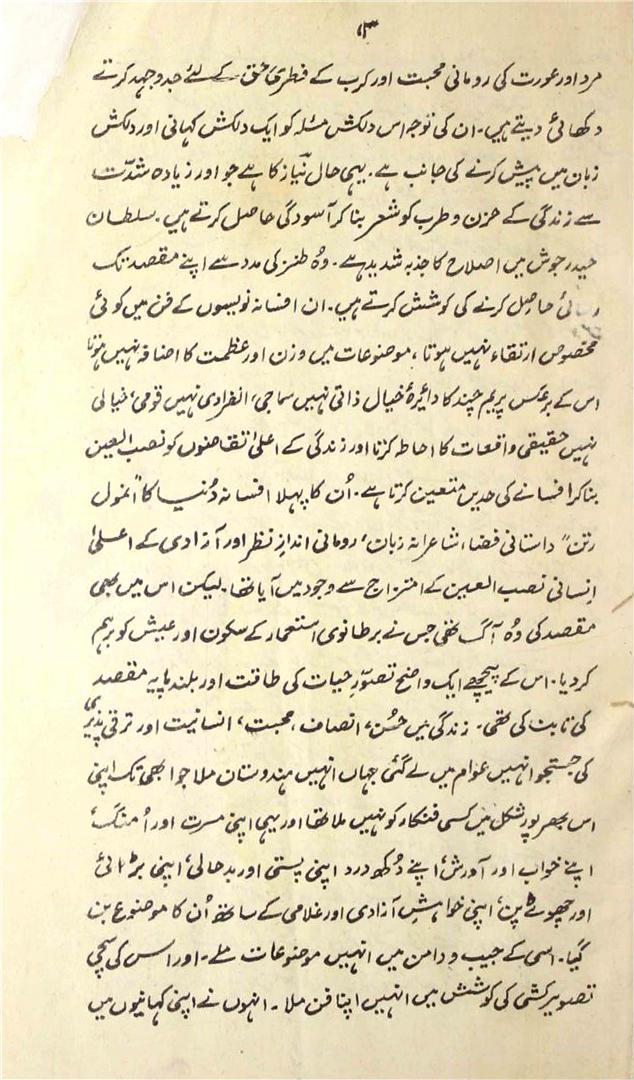 ۳
مرد اور عورت کی رومانی محبت اور کرب کے فطری حق کے لئے جدوجہد کرتے
دکھائی دیتے ہیں۔ ان کی توجہ اس دلکش مسئلہ کو ایک دلکش کہانی اور دلکش
زبان میں پیش کرنے کی جانب ہے۔ یہی حال نیاز کا ہے جو اور زیادہ شدّت
سے زندگی کے حزن و طرب کو شعر بنا کر آسودگی حاصل کرتے ہیں۔ سلطان
حیدر جوش میں اصلاح کا جذبہ شدید ہے۔ وُہ طنز کی مدد سے اپنے مقصد تک
رسائی حاصل کرنے کی کوشش کرتے ہیں۔ ان افسانہ نویسوں کے فن میں کوئی
مخصوص ارتقاء نہیں ہوتا، موضوعات میں وزن اور عظمت کا اضافہ نہیں ہوتا
اس کے برعکس پریم چند کا دائیرۂ خیال ذاتی نہیں سماجی، انفرادی نہیں قومی، خیالی
نہیں حقیقی واقعات کا احاطہ کرتا اور زندگی کے اعلیٰ تقاضوں کو نصب العین
بنا کر افسانے کی حدیں متعین کرتا ہے۔ اُن کا پہلا افسانہ دُنیا کا "انمول
رتن" داستانی فضا، شاعرانہ زبان، رومانی اندازِ نظر اور آزادی کے اعلیٰ
اِنسانی نصب العین کے امتزاج سے وجود میں آیا تھا۔ لیکن اس میں بھی
مقصد کی وُہ آگ تھی جس نے برطانوی استعمار کے سکون اور عیش کو برہم
کر دیا۔ اس کے پیچھے ایک واضح تصوّرِ حیات کی طاقت اور بلند پایہ مقصد
کی تابندگی تھی۔ زندگی میں حُسن، انصاف، محبت، انسانیت اور ترقی پذیری
کی جستجو انہیں عوام میں لے گئی جہاں انہیں ہندوستان ملا جو ابھی تک اپنی
اس بھرپور شکل میں کسی فنکار کو نہیں ملا تھا اور یہی اپنی مسرت اور اُمنگ،
اپنے خواب اور آورش، اپنے دُکھ درد اپنی پستی اور بدحالی، اپنی بڑائی
اور چھوٹے پن، اپنی خواہشِ آزادی اور غلامی کے ساتھ اُن کا موضوع بن
گیا۔ اسی کے جیب و دامن میں انہیں موضوعات ملے۔ اور اس کی سچی
تصویر کشی کی کوشش میں انہیں اپنا فن ملا۔ انہوں نے اپنی کہانیوں میں